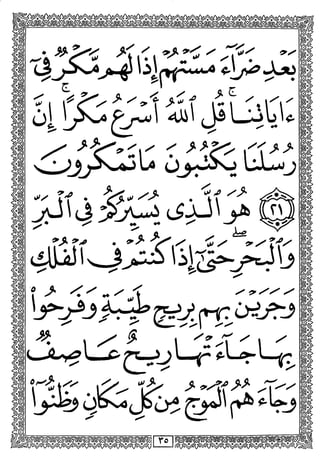 بَعْدِ ضَرَّآءَ مَسَّتْهُمْ إِذَا لَهُم مَّكْرٌ فِىٓ
ءَايَاتِنَا ۚ قُلِ ٱللَّهُ أَسْرَعُ مَكْرًا ۚ إِنَّ
رُسُلَنَا يَكْتُبُونَ مَا تَمْكُرُونَ
٢١ هُوَ ٱلَّذِى يُسَيِّرُكُمْ فِى ٱلْبَرِّ
وَٱلْبَحْرِ ۖ حَتَّىٰٓ إِذَا كُنتُمْ فِى ٱلْفُلْكِ
وَجَرَيْنَ بِهِم بِرِيحٍ طَيِّبَةٍ وَفَرِحُوا۟
بِهَا جَآءَتْهَا رِيحٌ عَاصِفٌ
وَجَآءَهُمُ ٱلْمَوْجُ مِن كُلِّ مَكَانٍ وَظَنُّوٓا۟
٣٥